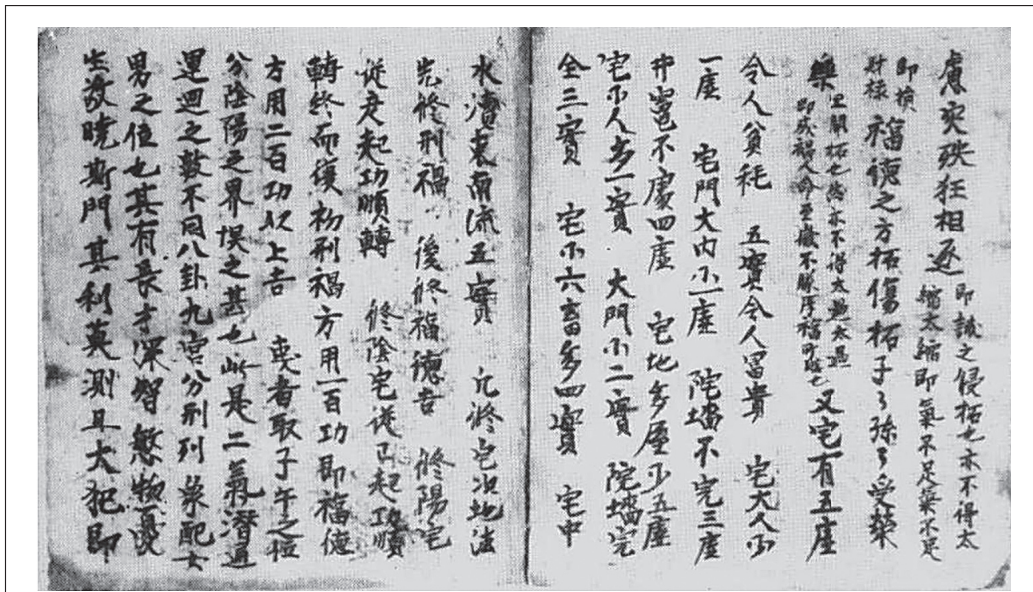 膚突殃狂相逐 即誡之侵拓也亦不得太
縮太縮即氣不足築不足
即損
財祿 福德之方拓傷拓子〻孫〻受榮
樂 里開拓也然亦不得太過太過
即成禍人命至微不勝厚福所致也 又宅有五虛
令人貧耗 五實令人冨貴 宅大人少
一虛 宅門大內小二虛 院墻不完三虛
井竈不處四虛 宅地多屋少五虛
宅小人多一實 大門小二實 院墻完
全三實 宅小六畜多四實 宅中
水瀆東南流五實 凡修宅次地法
先修刑禍 後修福德吉 修陽宅
從亥起功順轉 修陰宅從巳起功順
轉終而復初刑禍方用一百功即福德
方用二百功以上吉 或者取子午之位
分陰陽之界悞之甚也此是二氣潛通
運迴之數不同八卦九宮分刑列象配女
男之位也其有長才深智慜物愛
生敬曉斯門其利莫測且大犯即